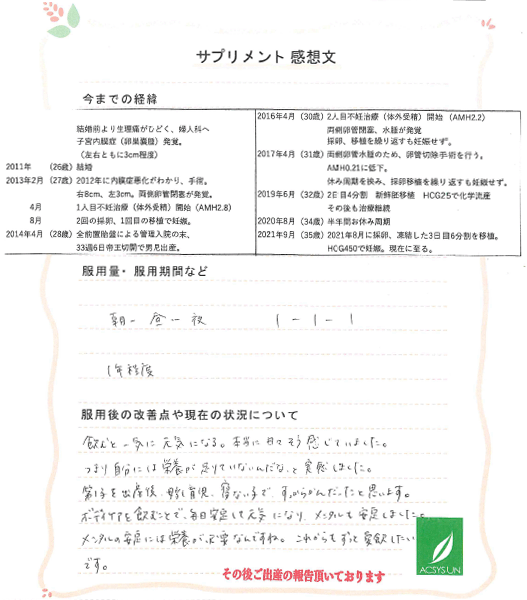 サプリメント 感想文
今までの経緯
結婚前より生理痛がひどく、婦人科へ
子宮内膜症（卵巣嚢腫）発覚。
（左右ともに3cm程度）
2011年 （26歳） 結婚
2013年2月 （27歳） 2012年に内膜症悪化がわかり、手術。
右8cm、左3cm。両側卵管閉塞が発覚。
4月 1人目不妊治療（体外受精）開始（AMH2.8）
8月 2回の採卵、1回目の移植で妊娠。
2014年4月 （28歳） 全前置胎盤による管理入院の末、
33週6日帝王切開で男児出産。
2016年4月 （30歳） 2人目不妊治療（体外受精）開始 （AMH2.2）
両側卵管閉塞、水腫が発覚
採卵、移植を繰り返すも妊娠せず。
2017年4月 （31歳） 両側卵管水腫のため、卵管切除手術を行う。
AMH0.21に低下。
休み周期を挟み、採卵移植を繰り返すも妊娠せず。
2019年6月 （32歳） 2日目4分割 新鮮胚移植 HCG25で化学流産
その後も治療継続
2020年8月 （34歳） 半年間お休み周期
2021年9月 （35歳） 2021年8月に採卵、凍結した3日目6分割を移植。
HCG450で妊娠。現在に至る。
服用量・服用期間など
朝－昼－夜 1－1－1
1年程度
服用後の改善点や現在の状況について
飲むと一気に元気になる。本当に日々そう感じていました。
つまり自分には栄養が足りていないんだな、と実感しました。
第1子を出産後、母乳育児、寝ない子で、すっからかんだったと思います。
ボディケアを飲むことで、毎日安定して元気になり、メンタルも安定しました。
メンタルの安定には栄養が必要なんですね。これからもずっと愛飲したい
です。
その後ご出産の報告頂いております
ACSYSUN